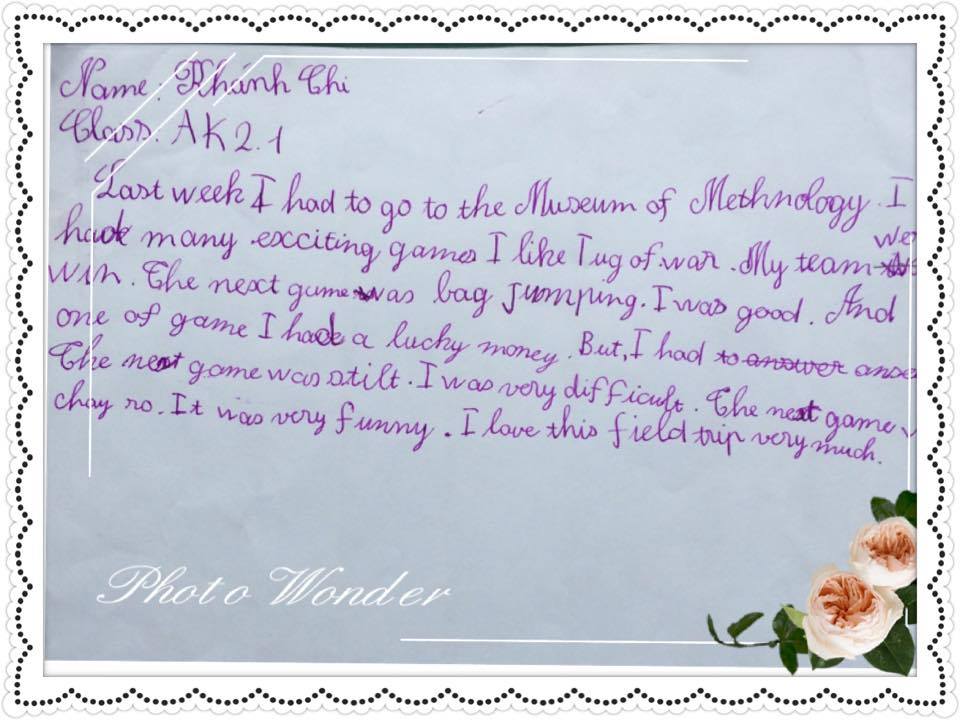 Name: Khánh Chi
Class: AK2.1
Last week I had to go to the Museum of Methnology. I
had many exciting games I like Tug of war. My team
win. The next game was bag jumping. I was good. And
one of game I had a lucky money. But, I had to answer
The next game was stilt. I was very difficult. The next game
chay ro. It was very funny. I love this field trip very much.
Photo Wonder